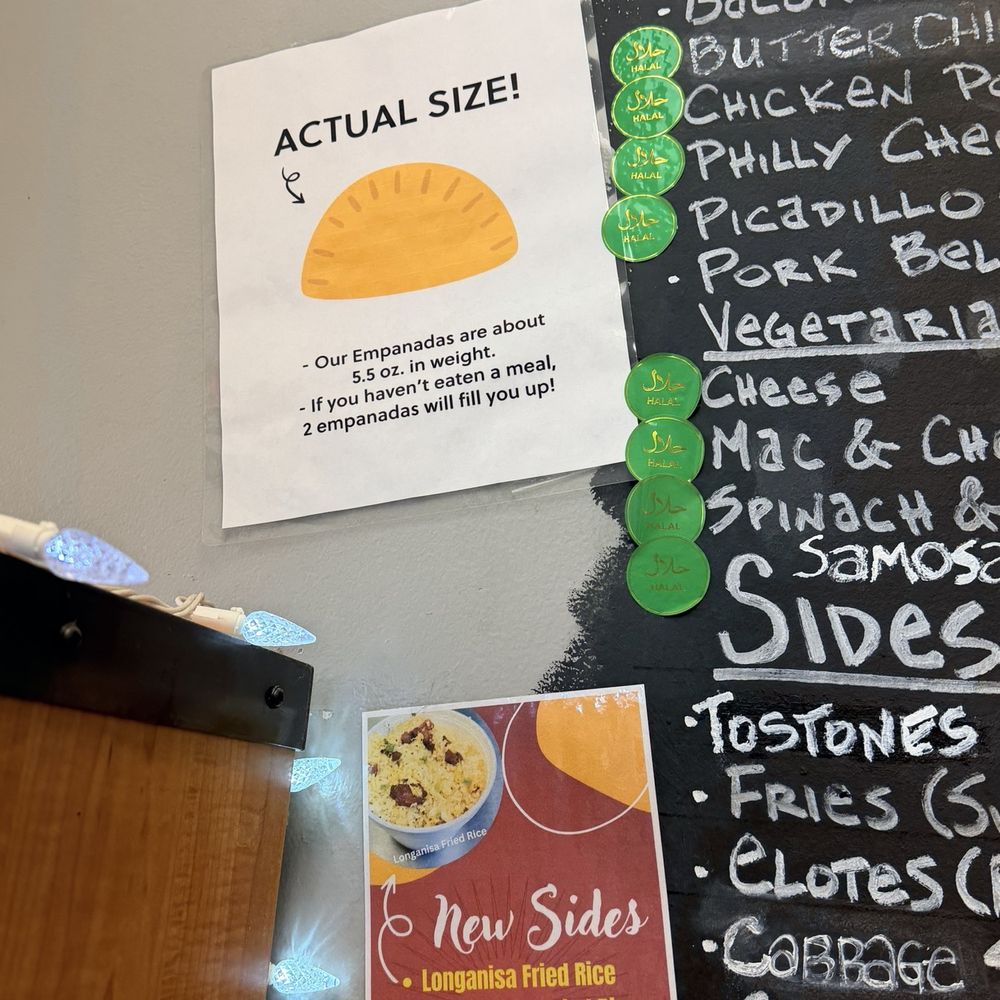 ACTUAL SIZE!
- Our Empanadas are about
5.5 oz. in weight.
- If you haven't eaten a meal,
2 empanadas will fill you up!
حلال
HALAL
BUTTER
حلال
HALAL
CHICKEN
حلال
HALAL
PHILLY
حلال
HALAL
PICADILLO
• PORK
VEGETARIA
حلال
HALAL
CHEESE
حلال
HALAL
MAC &
حلال
HALAL
SPINACH &
حلال
HALAL
SAMOSA
SIDES
• TOSTONES
• FRIES
• ELOTES
• CABBAGE
Longanisa Fried Rice
New Sides
• Longanisa Fried Rice